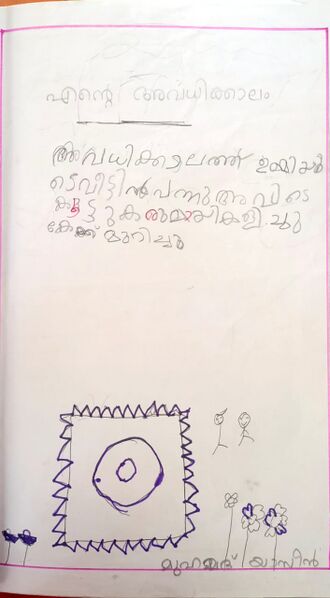 എന്റെ അവധിക്കാലം
അവധിക്കാലത്ത് ഉമ്മിയു
ടെവീട്ടിൽവന്നുഅവിടെ
കൂട്ടുകരുമായികളിച്ചു
കേക്ക് മുറിച്ചു
മുഹമ്മദ് യാസീൻ